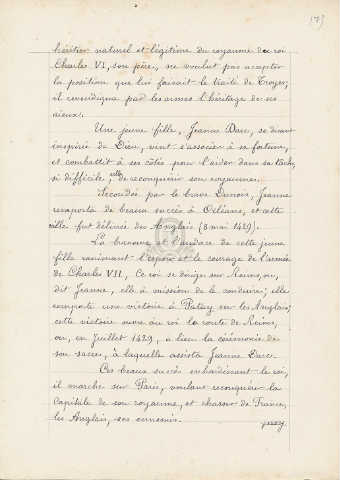 (7)
héritier naturel et légitime du royaume du roi
Charles VI, son père, ne voulut pas accepter
la position que lui faisait le traité de Troyes;
il revendiqua par les armes l'héritage de ses
aïeux.
Une jeune fille, Jeanne Darc, se disant
inspirée de Dieu, vint s'associer à sa fortune,
et combattit à ses côtés pour l'aider dans sa tâche
si difficile de reconquérir son royaume.
Secondée par le brave Dunois, Jeanne
remporta de beaux succès à Orléans, et cette
ville fut délivrée des Anglais (8 mai 1429).
La bravoure et l'audace de cette jeune
fille ranimant l'espoir et le courage de l'armée
de Charles VII, Ce roi se dirige sur Reims, ou,
dit Jeanne, elle a mission de le conduire; elle
remporte une victoire à Patay sur les Anglais;
cette victoire ouvre au roi la route de Reims,
ou, en Juillet 1429, a lieu la cérémonie de
son sacre, à laquelle assista Jeanne Darc.
Ces beaux succès enhardissant le roi,
il marche sur Paris, voulant reconquérir la
Capitale de son royaume, et chasser de France,
les Anglais, ses ennemis.